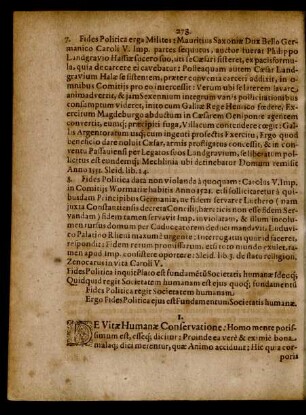 278.
7. Fides Politica erga Milites: Mauritius Saxoniæ Dux Bello Ger-
manico Caroli V. Imp. partes sequutus, auctor fuerat Philippo
Landgravio Hassiæ socero suo, uti se Cæsari sisteret, ex pacis formu-
la, quia de carcere ei cavebatur: Posteaquam autem Cæsar Land-
gravium Halæ se sistentem, præter conventa carceri addixit, in o-
mnibus Comitiis pro eo intercessit: Verum ubi se laterem lavare
animadvertit, & jam Sexennium integrum vanis pollicitationibus
consumptum videret, inito cum Galliæ Rege Henrico fœdere, Ex-
ercitum Magdeburgo abductum in Cæsarem Oeniponte agentem
convertit, eumq; præcipiti fuga, Villacum discedere coegit: Rex Gal-
liæ Argentoratum usq; cum ingenti profectis Exercitu, Ergo quod
beneficio dare noluit Cæsar, armis prostigatus concessit, & in con-
ventu Passaviensi per Legatos suos Landgravium, se liberatum pol-
licitus est eundemq; Mechliniâ ubi detinebatur Domum remisit
Anno 1552. Sleid. lib. 24.
8. Fides Politica data non violanda à quoquam: Carolus V. Imp.
in Comitiis Wormatiæ habitis Anno 1521. etsi sollicitaretur à qui-
busdam Principibus Germaniæ, ne fidem servaret Luthero (nam
juxta Constantiensis decreta Concilii, hæreticis non esse fidem Ser-
vandam) fidem tamen servavit Imp. invioIato, & illum incolu-
mem rursus domum per Caduceatorem deduci mandavit. Ludovi-
co Palatino Rheni maximè urgente: Interrogatus quare id faceret,
respondit: Fidem rerum promissarum, etsi toto mundo exulet, ta-
men apud Imp. consistere oportere: Sleid. lib. 3. de statu religion.
Zenocarus in vita Caroli V.
Fides Politica inquit Plato est fundamētū Societatis humanæ Ideoq;
Quidquid regit Societatem humanam est ejus quoq; fundamentū
Fides Politica regit Societatem humanam.
Ergo Fides Politica ejus est Fundamentum Societatis humanæ.
I.
DE Vitæ Humanæ Conservatione: Homo mente potis-
simum est, esseq; dicitur: Proinde ea verè & ex mie bona
malaq; dici merentur, quæ Animo accidunt: Hic qui à cor-
poris